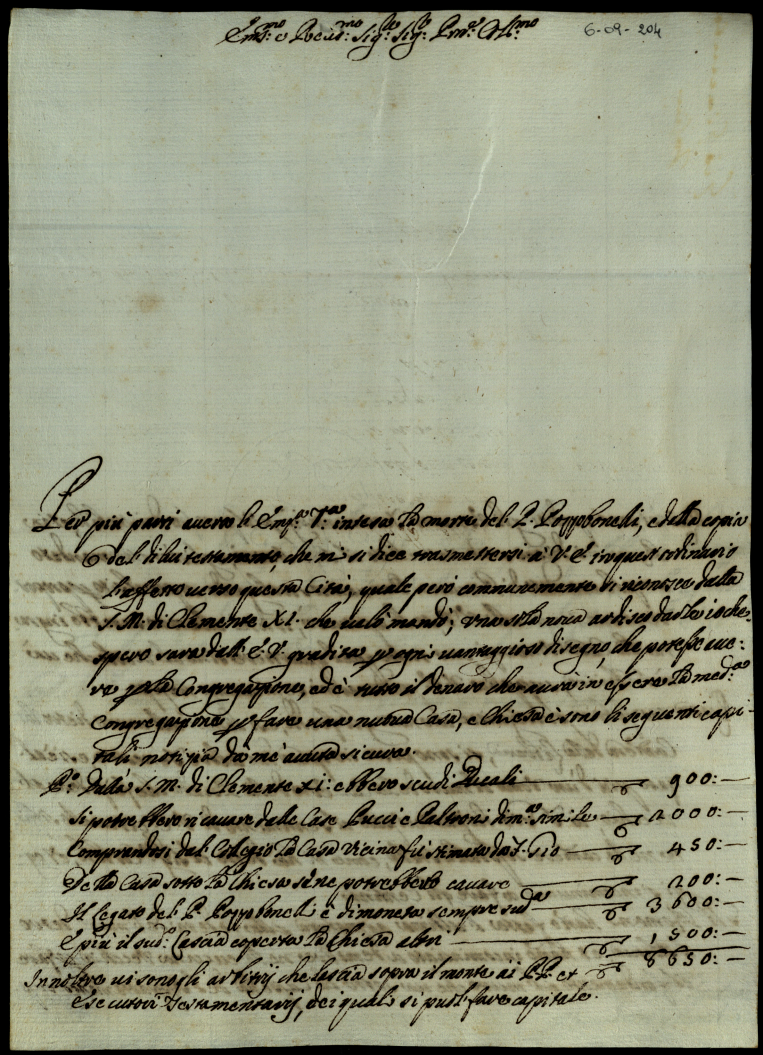 Em.mo e Rev.mo Sig.re Sig.re P.rone Col.mo
6-09-204
Per più parti averà l'Em.za V.ra intesa la morte del P. Pozzobonelli, e dalla copia
del di lui testamento, che mi si dice trasmettersi à V. E. in quest'ordinario
l'affetto verso questa Città, quale però communemente si riconosce dalla
S. M. di Clemente XI. che qua lo mandò; una sola nova ardisco darle io che
spero sarà dall'E. V. gradita p ogni vantaggioso disegno, che potesse ave:
re p la Congregazione, ed è tutto il denaro che avrà in essere la med.a
Congregazione p fare una nuova Casa, e Chiesa è sono li seguenti capi-
tali notizia da mè avuta sicura.
P.o Dalla S. M. di Clemente XI: ebbero scudi Ducali — 900:—
Si potrebbero ricavare dalle Case Pucci e Paltroni di m.ta simile — 2000:—
Comprandosi dal Collegio la Casa vicina fù stimata da S. Pio — 450:—
Della Casa sotto la Chiesa se ne potrebbero cavare — 200:—
Il Legato del P. Pozzobonelli è di moneta sempre sud.a — 3600:—
E più il sud.o lascia coperta la Chiesa altri — 1500:—
8650:—
Innoltre vi sono gli arbitrij che lascia sopra il monte ài PP. et
Esecutori Testamentarij, dei quali si può far capitale.